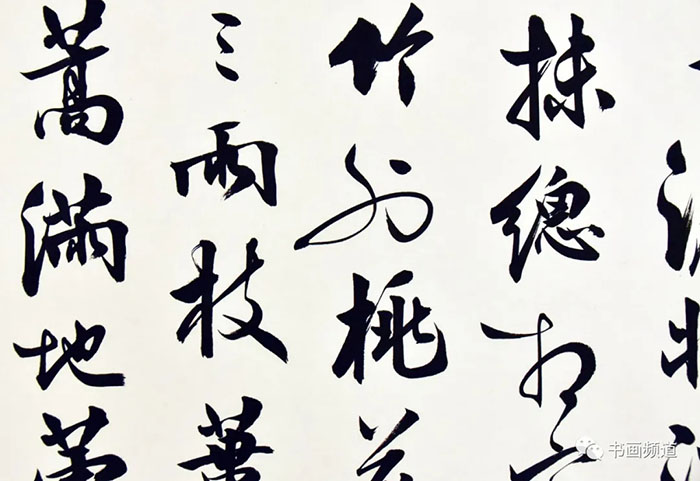 抹總相宜
竹外桃花
三兩枝
蒿滿地
书画频道